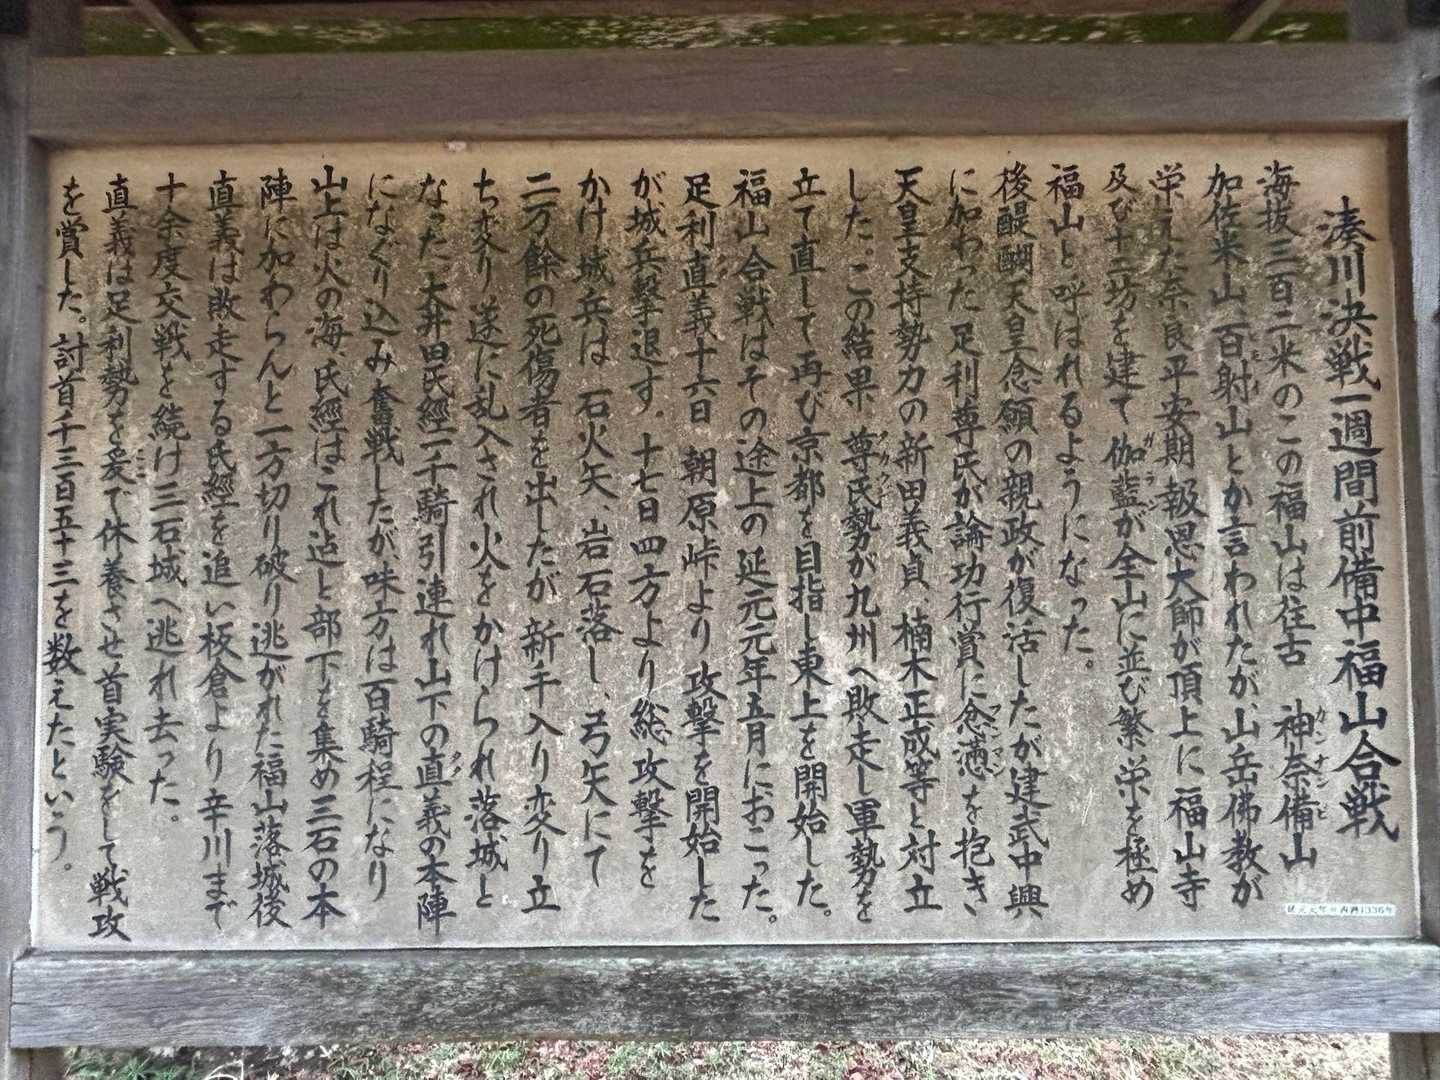 湊川決戦一週間前備中福山合戦
海抜三百二米のこの福山は往古 神奈備山
加佐米山、百射山とか言われたが、山岳佛教が
栄えた奈良平安期 報恩大師が頂上に福山寺
及び十二坊を建て 伽藍が全山に並び繁栄を極め
福山と呼ばれるようになった。
後醍醐天皇念願の親政が復活したが建武中興
に加わった足利尊氏が論功行賞に忿懣を抱き
天皇支持勢力の新田義貞、楠木正成等と対立
した。この結果 尊氏勢が九州へ敗走し軍勢を
立て直して再び京都を目指し東上を開始した。
福山合戦はその途上の延元元年五月におこった。
足利直義十六日 朝原峠より攻撃を開始した
が城兵撃退す。十七日四方より総攻撃を
かけ城兵は 石火矢、岩石落し、弓矢にて
二万餘の死傷者を出したが 新手入り変り立
ち変り遂に乱入され火をかけられ落城と
なった。大井田氏經一千騎引連れ山下の直義の本陣
になぐり込み奮戦したが、味方は百騎程になり
山上は火の海、氏經はこれ迠と部下を集め三石の本
陣に加わらんと一方切り破り逃がれた福山落城後
直義は敗走する氏經を追い板倉より辛川まで
十余度交戦を続け三石城へ逃れ去った。
直義は足利勢を爰で休養させ首実験をして戦攻
を賞した。討首千三百五十三を数えたという。
延元元年=西暦1336年